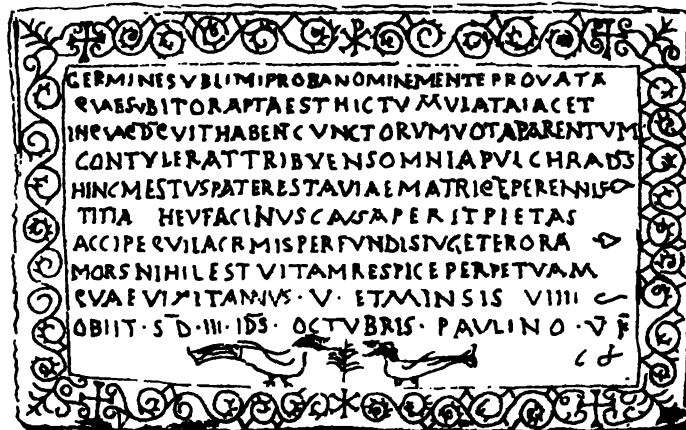 GERMINESVBLIMIPROBANOMINEMENTEPROVATA
QVAESVBITORAPTAESTHICTVMVLATAIACET
INQVAEDEVITHABENCVNCTORVMVOTAPARENTVM
CONTVLERATTRIBVENSOMNIAPVLCHRADS
HINCMESTVSPATERESTAVIAEMATRIQEPERENNIS
TITIA HEVFACINVSCAVSAPERITPIETAS
ACCIPEQVILACRMISPERFVNDISIVGETERORA
MORSNIHILESTVITAMRESPICEPERPETVAM
QVAEVIXITANNVS·V·ETMINSIS VIIII
OBIIT·SD·III·IDS·OCTVBRIS·PAVLINO·V